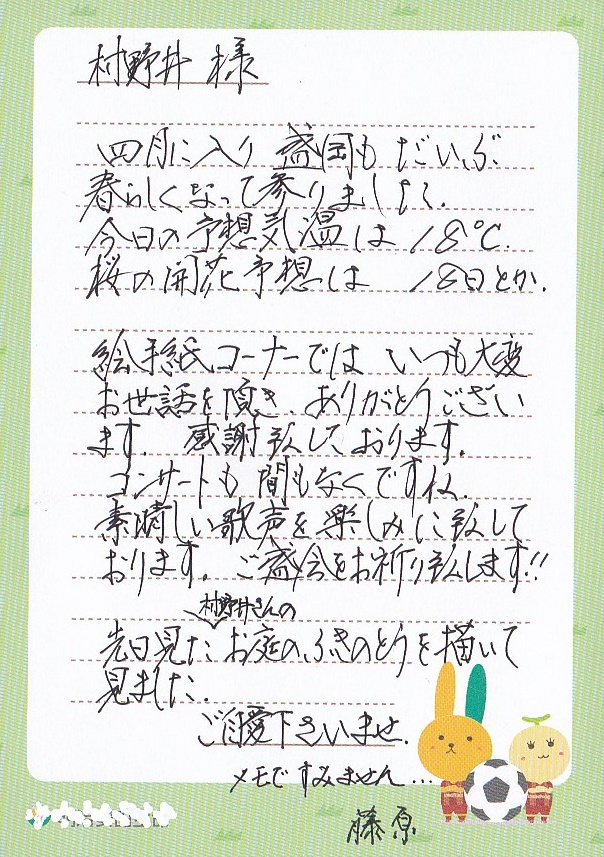 村野井 様
四月に入り 盛岡も だいぶ
春らしくなって参りました。
今日の予想気温は 18℃.
桜の開花予想は 18日とか.
絵手紙コーナーでは いつも大変
お世話を頂き、ありがとうござい
ます. 感謝致しております.
コンサートも 間もなくですね.
素晴しい歌声を楽しみに致して
おります. ご盛会をお祈り致します!!
村野井さんの
先日見た お庭の、ふきのとうを描いて
見ました.
ご自愛下さいませ.
メモで すみません...
藤原